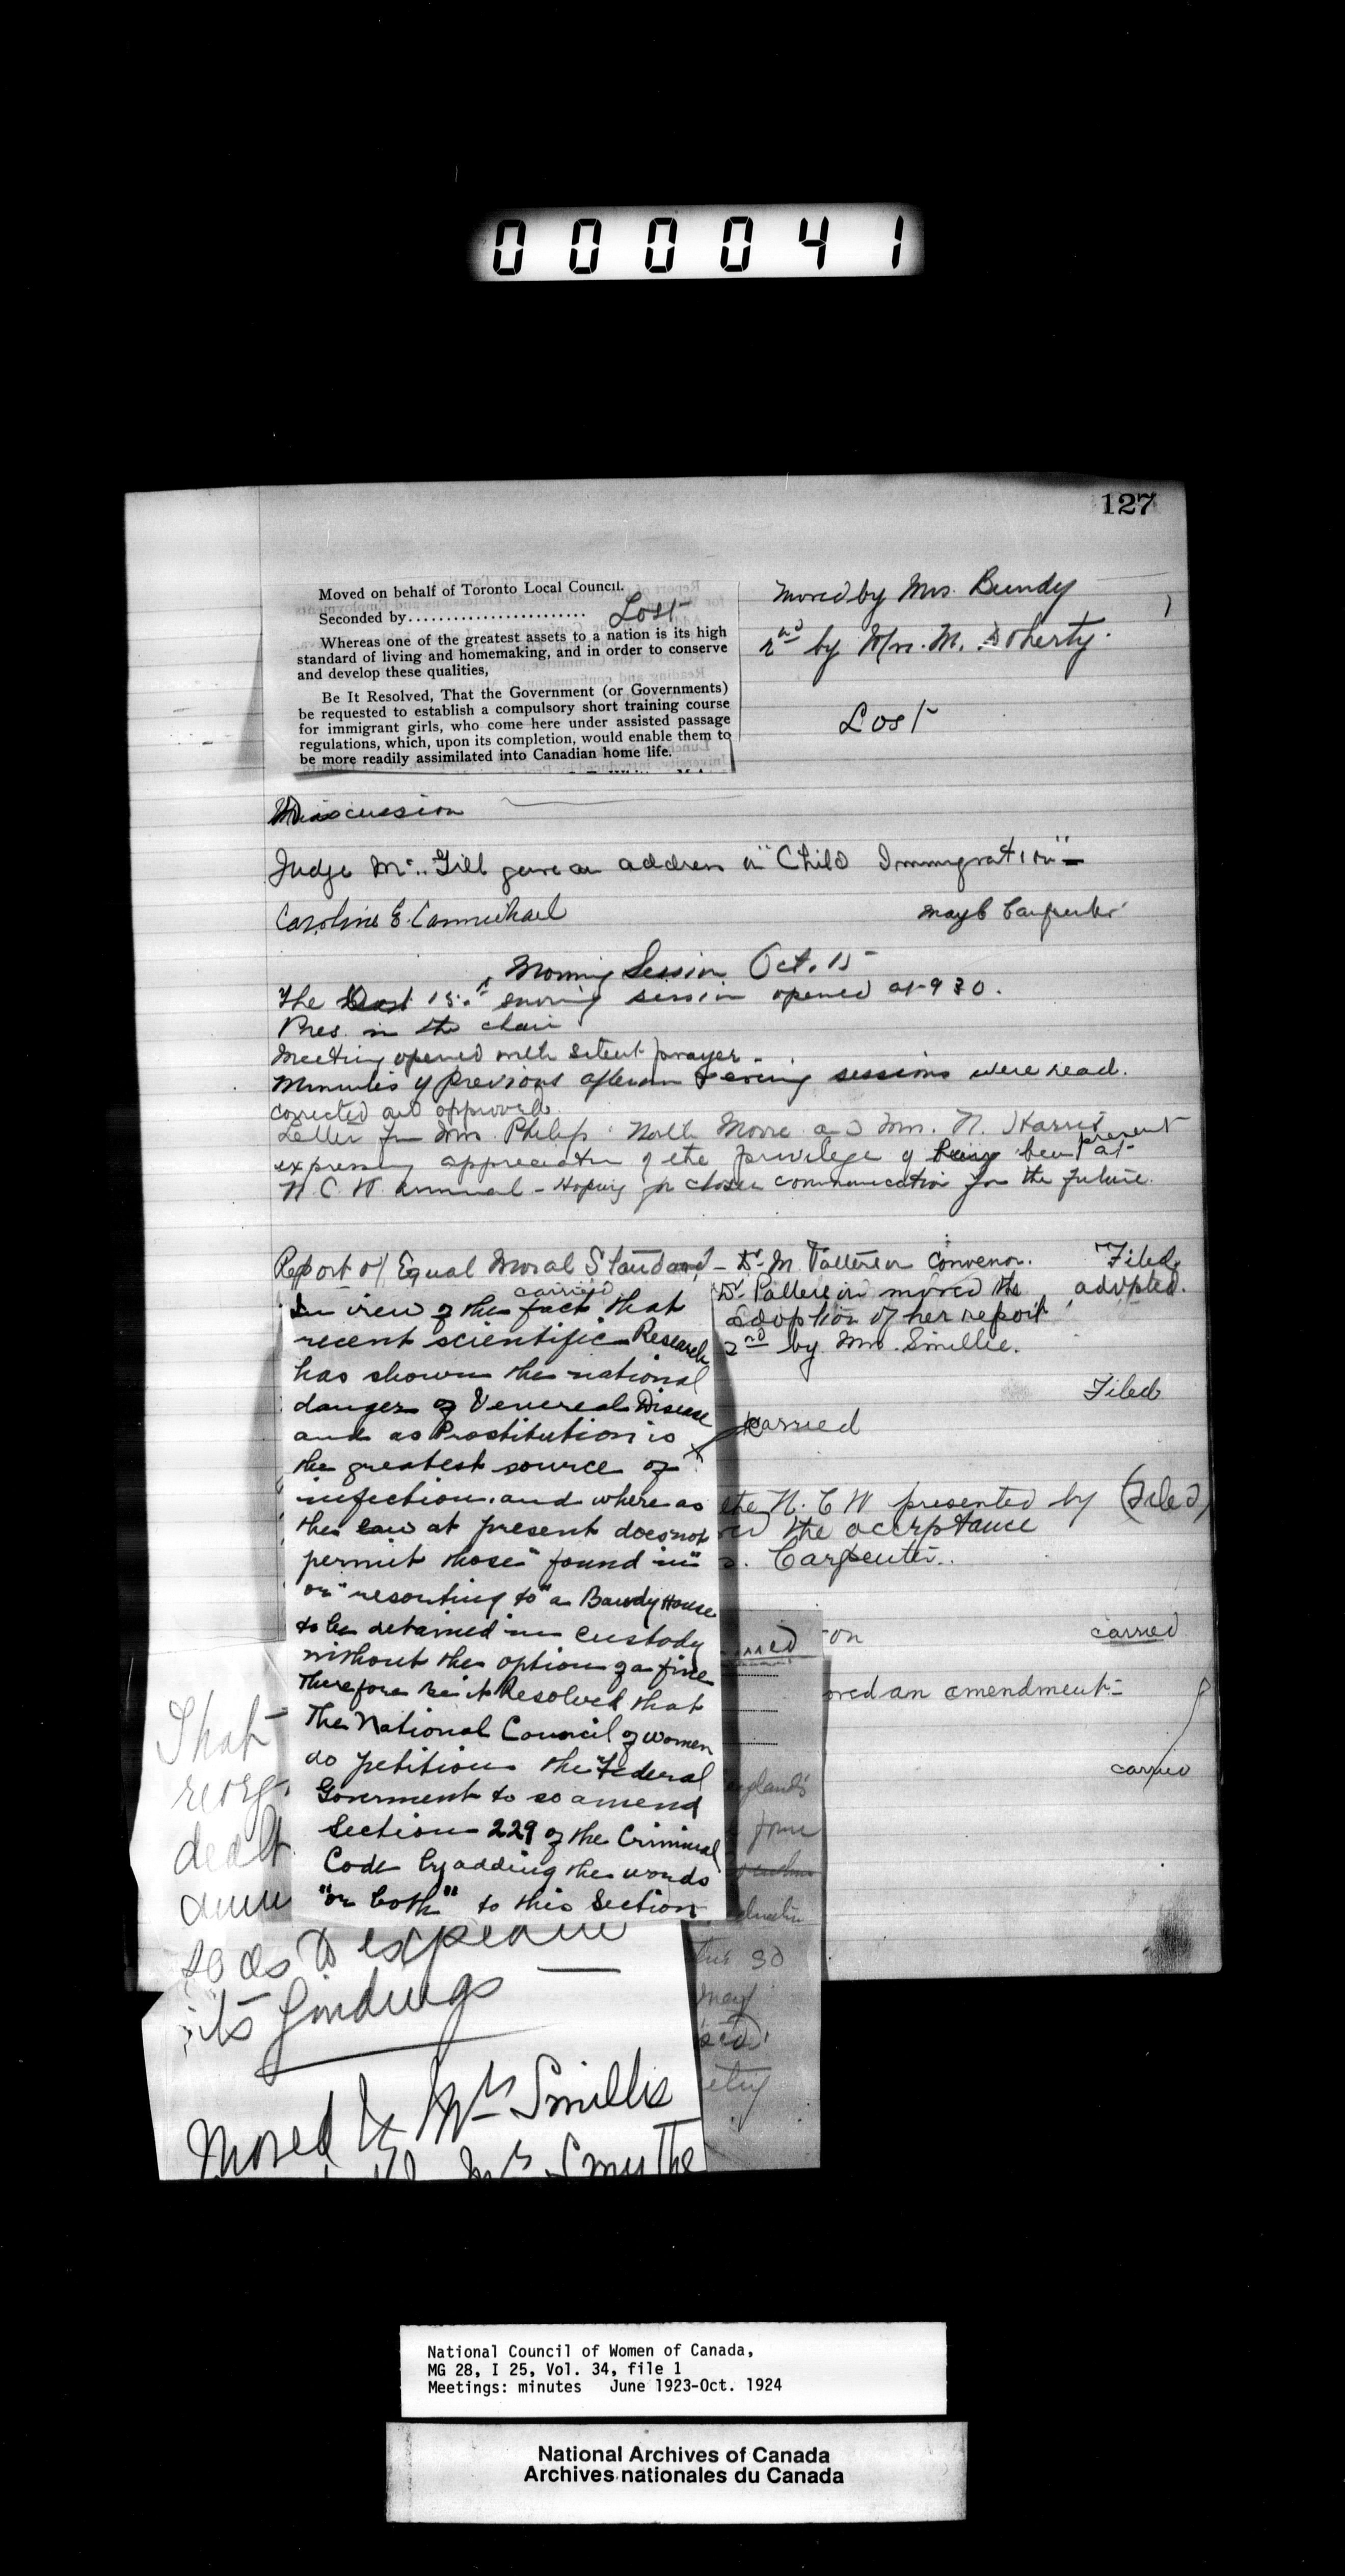 000041
127
Moved on behalf of Toronto Local Council.
Seconded by........................ Lost
Whereas one of the greatest assets to a nation is its high
standard of living and homemaking, and in order to conserve
and develop these qualities,
Be It Resolved, That the Government (or Governments)
be requested to establish a compulsory short training course
for immigrant girls, who come here under assisted passage
regulations, which, upon its completion, would enable them to
be more readily assimilated into Canadian home life.
Moved by Mrs. Bundy
2nd by Mrs. M. Doherty.
Lost
Discussion
Judge Mc Gill gave an address on "Child Immigration" -
Caroline E. Carmichael
May C Carpenter
Morning Session Oct. 15
The 15th session opened at 9 30.
Pres. in the chair
Meeting opened with silent prayer -
Minutes of previous afternoon & evening sessions were read.
corrected and approved.
Letter fm Mrs. Philip North Moore and Mrs. N. Harris
expressing appreciation of the privilege of being been present at
N C W annual - Hoping for closer communication for the future.
Report of Equal Moral Standard - Dr. M. Patterson Convenor. Filed
carried
Dr. Patterson moved the adopted.
adoption of her report
2nd by Mrs. Smillie.
Filed
Carried
In view of the fact that
recent scientific Research
has shown the national
danger of Venereal Disease
and as Prostitution is
the greatest source of
infection. and where as
the law at present does not
permit those "found in"
or "resorting to" a Bawdy House
to be detained in custody
without the option of a fine
Therefore be it Resolved that
The National Council of women
do petition the Federal
Goverment to so amend
Section 229 of the Criminal
Code by adding the words
"or both" to this Section
the N. C W presented by (Filed)
the acceptance
Carpenter.
on carried
an amendment:-
carried
That
reorg
dealt
so as to explain
its findings
Moved by Mrs Smillie
Mrs Smythe
30
may
National Council of Women of Canada,
MG 28, I 25, Vol. 34, file 1
Meetings: minutes June 1923-Oct. 1924
National Archives of Canada
Archives nationales du Canada